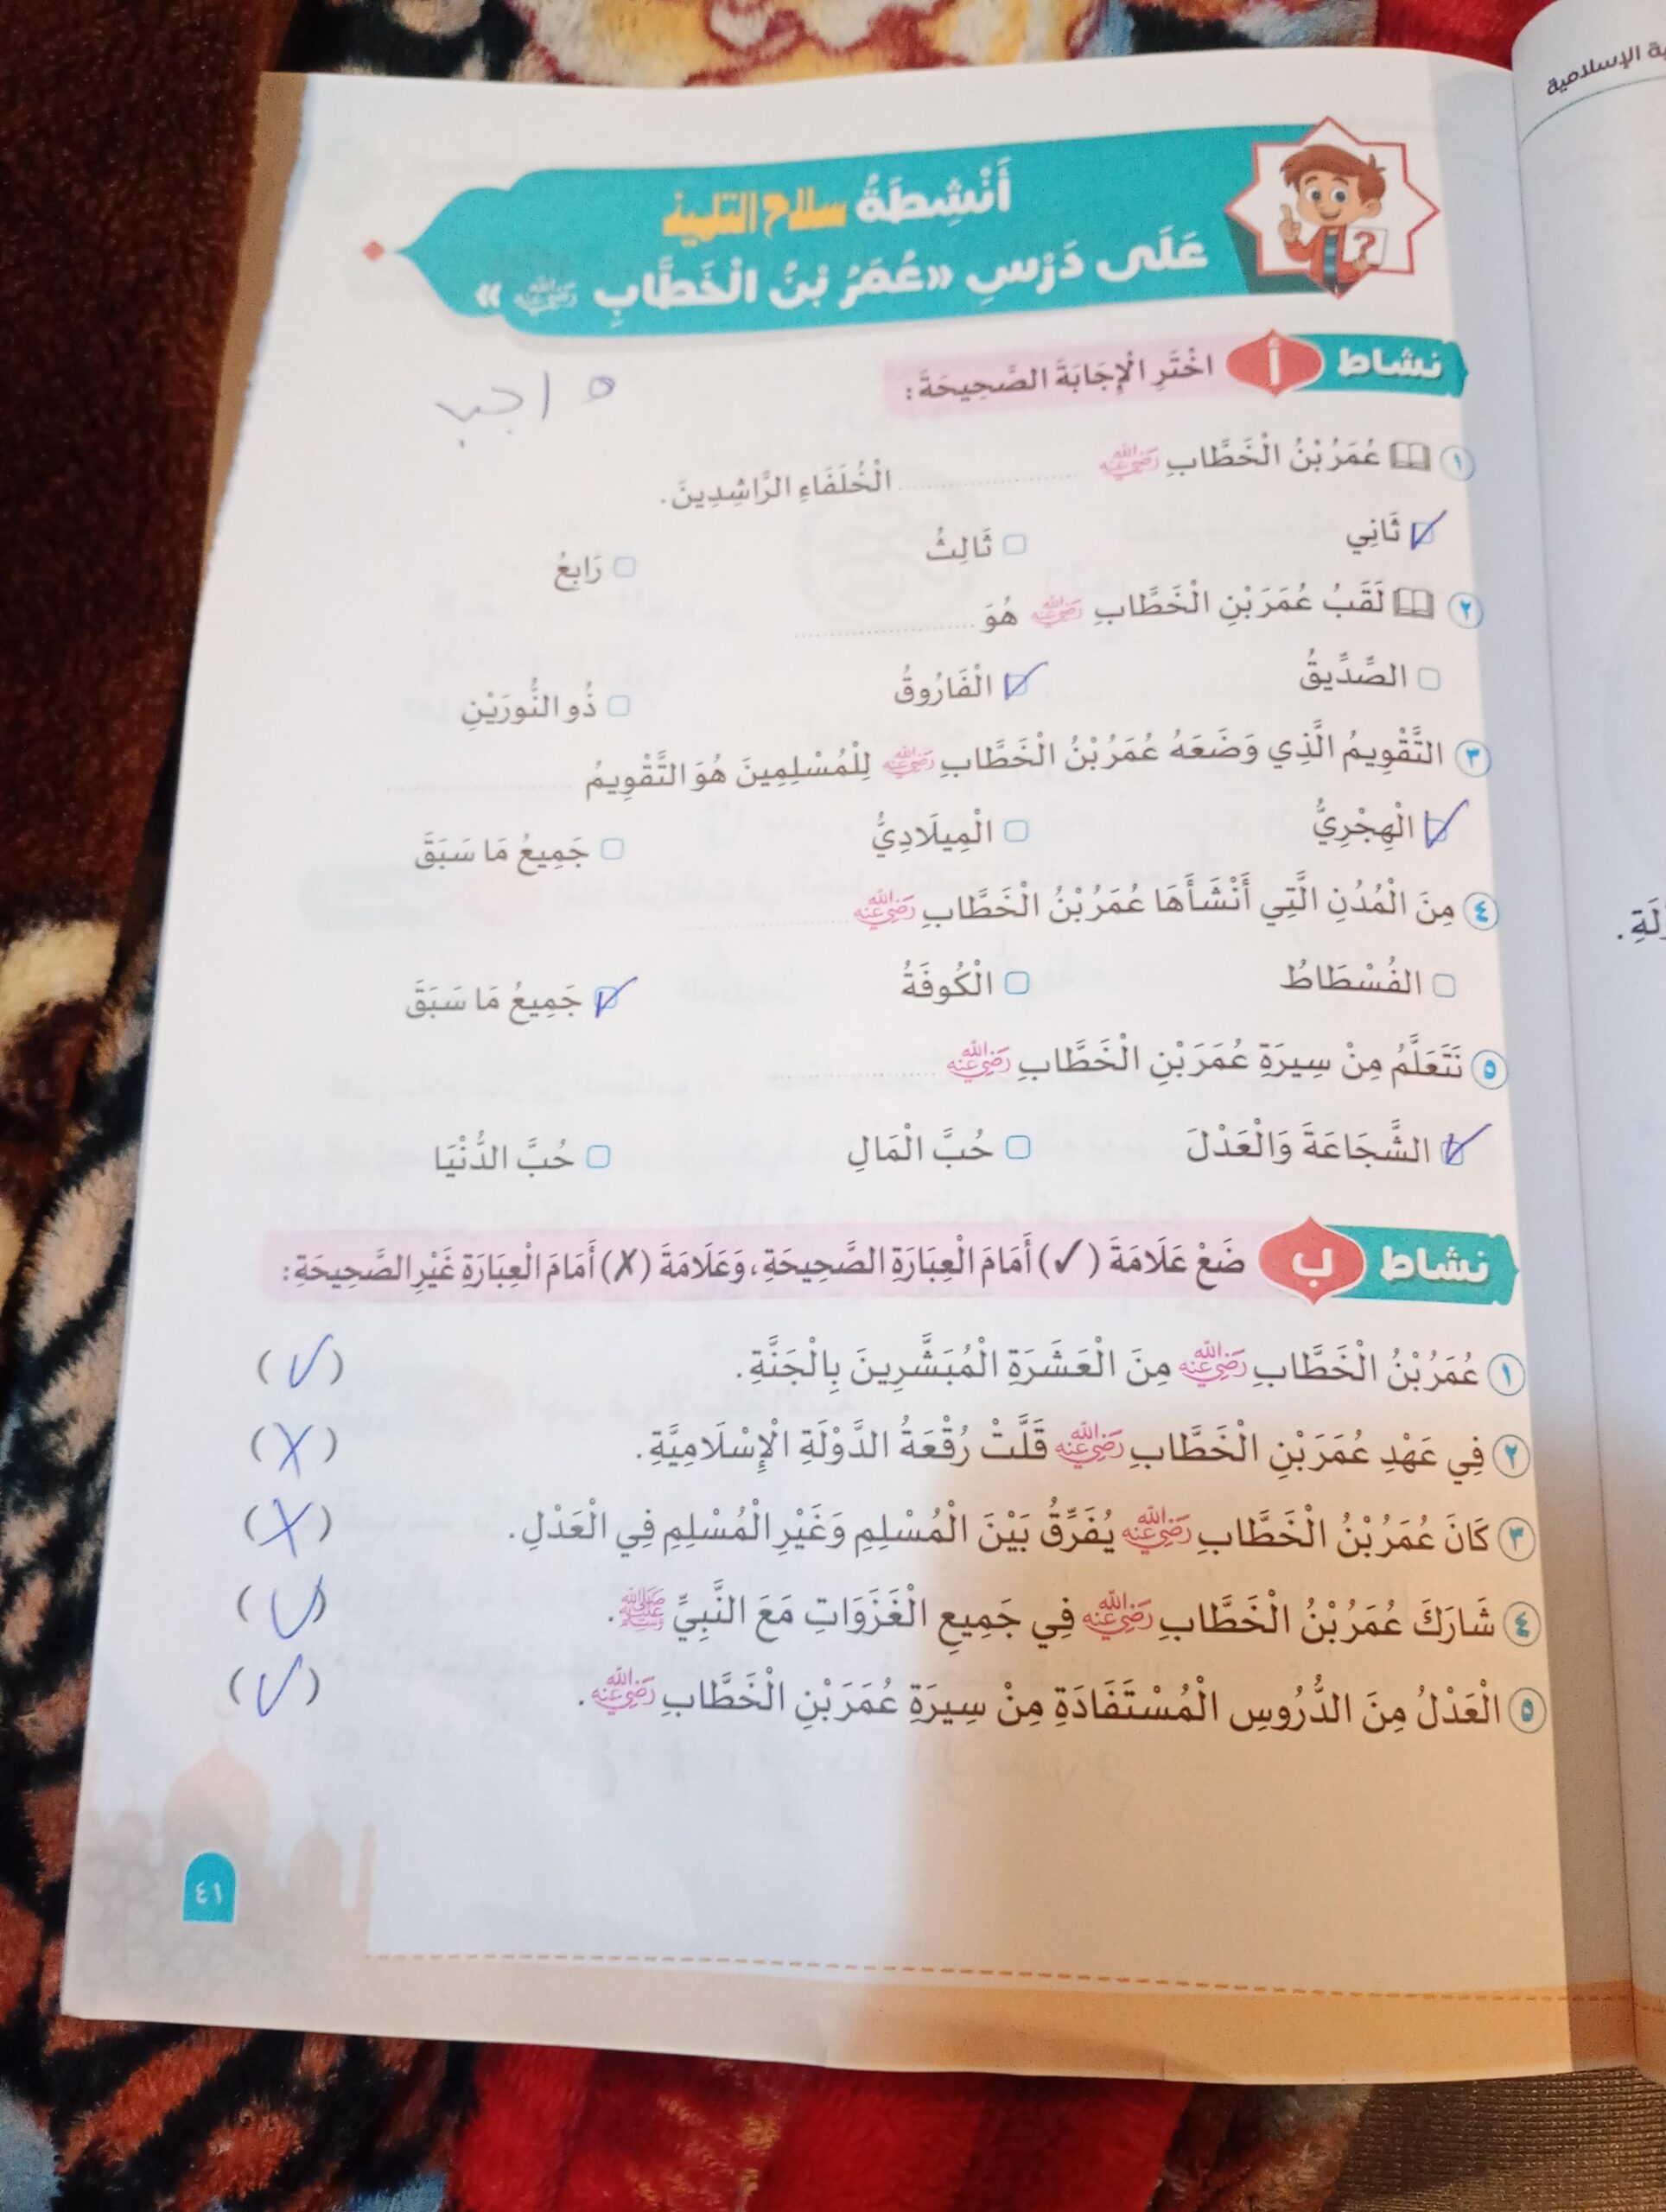 ية الإسلامية
أَنْشِطَةُ سلاح التلميذ
عَلَى دَرْسِ «عُمَرُ بْنُ الْخَطَّابِ رَضِيَ اللهُ عَنْهُ»
نشاط أ اخْتَرِ الْإِجَابَةَ الصَّحِيحَةَ:
واجب
١ عُمَرُ بْنُ الْخَطَّابِ رَضِيَ اللهُ عَنْهُ .................... الْخُلَفَاءِ الرَّاشِدِينَ.
✓ ثَانِي ▢ ثَالِثُ ▢ رَابِعُ
٢ لَقَبُ عُمَرَ بْنِ الْخَطَّابِ رَضِيَ اللهُ عَنْهُ هُوَ ....................
▢ الصِّدِّيقُ ✓ الْفَارُوقُ ▢ ذُو النُّورَيْنِ
٣ التَّقْوِيمُ الَّذِي وَضَعَهُ عُمَرُ بْنُ الْخَطَّابِ رَضِيَ اللهُ عَنْهُ لِلْمُسْلِمِينَ هُوَ التَّقْوِيمُ ....................
✓ الْهِجْرِيُّ ▢ الْمِيلَادِيُّ ▢ جَمِيعُ مَا سَبَقَ
٤ مِنَ الْمُدُنِ الَّتِي أَنْشَأَهَا عُمَرُ بْنُ الْخَطَّابِ رَضِيَ اللهُ عَنْهُ ....................
▢ الفُسْطَاطُ ▢ الْكُوفَةُ ✓ جَمِيعُ مَا سَبَقَ
٥ نَتَعَلَّمُ مِنْ سِيرَةِ عُمَرَ بْنِ الْخَطَّابِ رَضِيَ اللهُ عَنْهُ ....................
✓ الشَّجَاعَةَ وَالْعَدْلَ ▢ حُبَّ الْمَالِ ▢ حُبَّ الدُّنْيَا
نشاط ب ضَعْ عَلَامَةَ (✓) أَمَامَ الْعِبَارَةِ الصَّحِيحَةِ، وَعَلَامَةَ (✗) أَمَامَ الْعِبَارَةِ غَيْرِ الصَّحِيحَةِ:
١ عُمَرُ بْنُ الْخَطَّابِ رَضِيَ اللهُ عَنْهُ مِنَ الْعَشَرَةِ الْمُبَشَّرِينَ بِالْجَنَّةِ. (✓)
٢ فِي عَهْدِ عُمَرَ بْنِ الْخَطَّابِ رَضِيَ اللهُ عَنْهُ قَلَّتْ رُقْعَةُ الدَّوْلَةِ الْإِسْلَامِيَّةِ. (✗)
٣ كَانَ عُمَرُ بْنُ الْخَطَّابِ رَضِيَ اللهُ عَنْهُ يُفَرِّقُ بَيْنَ الْمُسْلِمِ وَغَيْرِ الْمُسْلِمِ فِي الْعَدْلِ. (✗)
٤ شَارَكَ عُمَرُ بْنُ الْخَطَّابِ رَضِيَ اللهُ عَنْهُ فِي جَمِيعِ الْغَزَوَاتِ مَعَ النَّبِيِّ ﷺ. (✓)
٥ الْعَدْلُ مِنَ الدُّرُوسِ الْمُسْتَفَادَةِ مِنْ سِيرَةِ عُمَرَ بْنِ الْخَطَّابِ رَضِيَ اللهُ عَنْهُ. (✓)
٤١